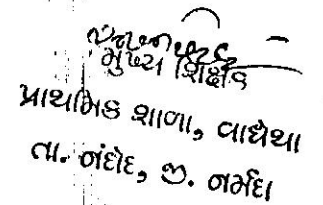 મુખ્ય શિક્ષક
પ્રાથમિક શાળા, વાઘેથા
તા. નાંદોદ, જી. નર્મદા